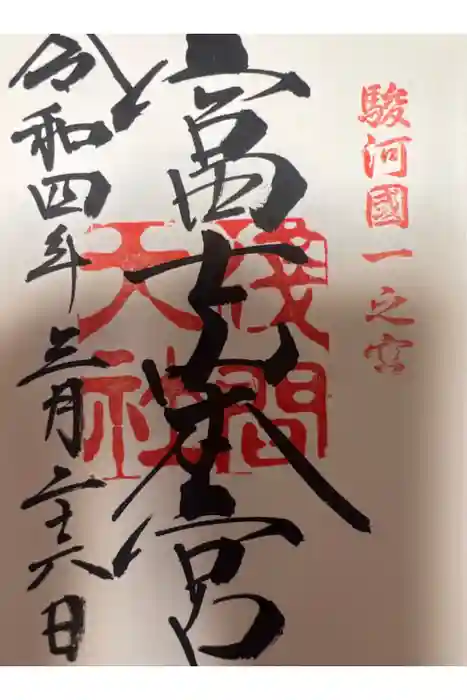 駿河國一之宮
富士本宮
淺間
天社
令和四年三月二十六日